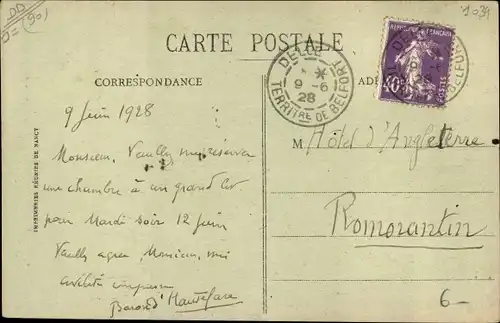 DD
D= (90)
1039
CARTE POSTALE
CORRESPONDANCE
AD
DELLE
9-6
28
TERRITRE DE BELFORT
REPUBLIQUE FRANÇAISE
40c
POSTES
BELFORT
IMPRIMERIES RÉUNIES DE NANCY
9 Juin 1928
Monsieur, Veuillez me réserver
une chambre à un grand lit
pour Mardi soir 12 Juin
Veuillez agréer, Monsieur, mes
civilités
Baron d'Hautefare
M Hôtel d'Angleterre
Romorantin
6-